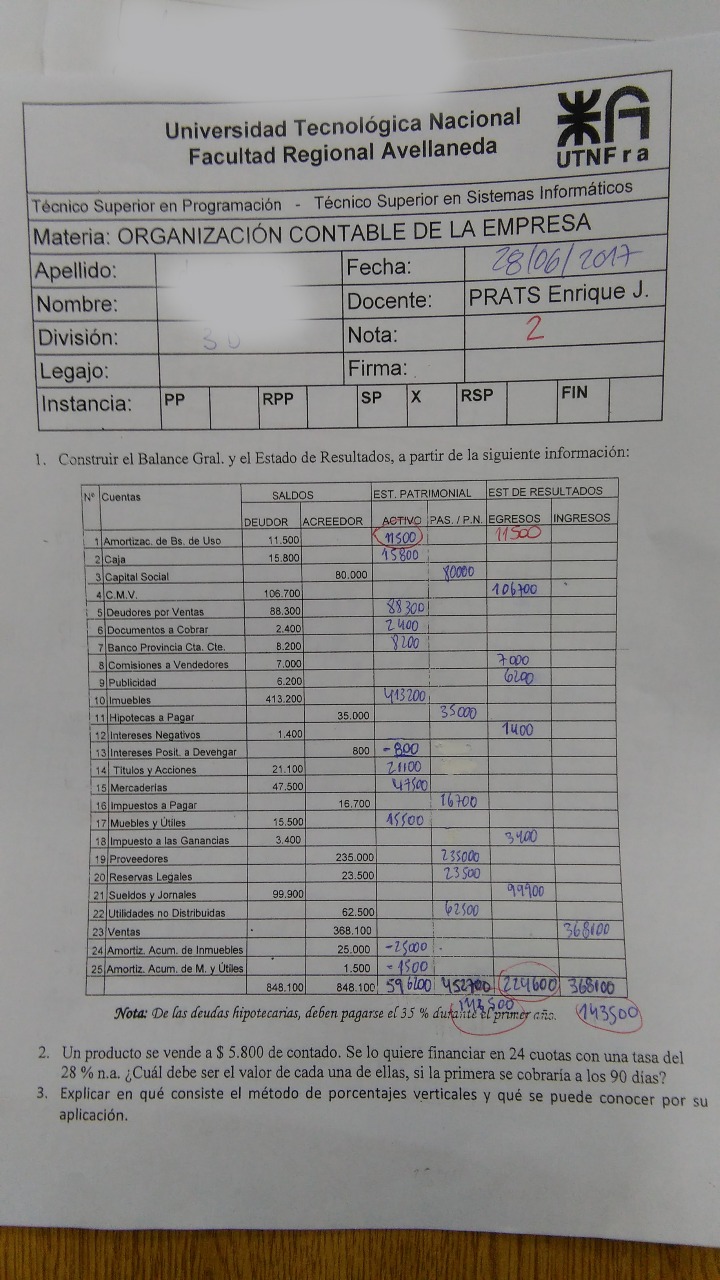 Universidad Tecnológica Nacional
Facultad Regional Avellaneda
UTNFra
Técnico Superior en Programación - Técnico Superior en Sistemas Informáticos
Materia: ORGANIZACIÓN CONTABLE DE LA EMPRESA
Apellido: Fecha: 28/06/2017
Nombre: Docente: PRATS Enrique J.
División: Nota: 2
Legajo: Firma:
Instancia: PP RPP SP X RSP FIN
1. Construir el Balance Gral. y el Estado de Resultados, a partir de la siguiente información:
Nº Cuentas SALDOS EST. PATRIMONIAL EST DE RESULTADOS
DEUDOR ACREEDOR ACTIVO PAS. / P.N. EGRESOS INGRESOS
1 Amortizac. de Bs. de Uso 11.500 11500 11500
2 Caja 15.800 15800
3 Capital Social 80.000 80000
4 C.M.V. 106.700 106700
5 Deudores por Ventas 88.300 88300
6 Documentos a Cobrar 2.400 2400
7 Banco Provincia Cta. Cte. 8.200 8200
8 Comisiones a Vendedores 7.000 7000
9 Publicidad 6.200 6200
10 Imuebles 413.200 413200
11 Hipotecas a Pagar 35.000 35000
12 Intereses Negativos 1.400 1400
13 Intereses Posit. a Devengar 800 -800
14 Titulos y Acciones 21.100 21100
15 Mercaderías 47.500 47500
16 Impuestos a Pagar 16.700 16700
17 Muebles y Útiles 15.500 15500
18 Impuesto a las Ganancias 3.400 3400
19 Proveedores 235.000 235000
20 Reservas Legales 23.500 23500
21 Sueldos y Jornales 99.900 99900
22 Utilidades no Distribuidas 62.500 62500
23 Ventas 368.100 368100
24 Amortiz. Acum. de Inmuebles 25.000 -25000
25 Amortiz. Acum. de M. y Útiles 1.500 -1500
848.100 848.100 596200 452700 224600 368100
143500 143500
Nota: De las deudas hipotecarias, deben pagarse el 35 % durante el primer año.
2. Un producto se vende a $ 5.800 de contado. Se lo quiere financiar en 24 cuotas con una tasa del
28 % n.a. ¿Cuál debe ser el valor de cada una de ellas, si la primera se cobraría a los 90 días?
3. Explicar en qué consiste el método de porcentajes verticales y qué se puede conocer por su
aplicación.